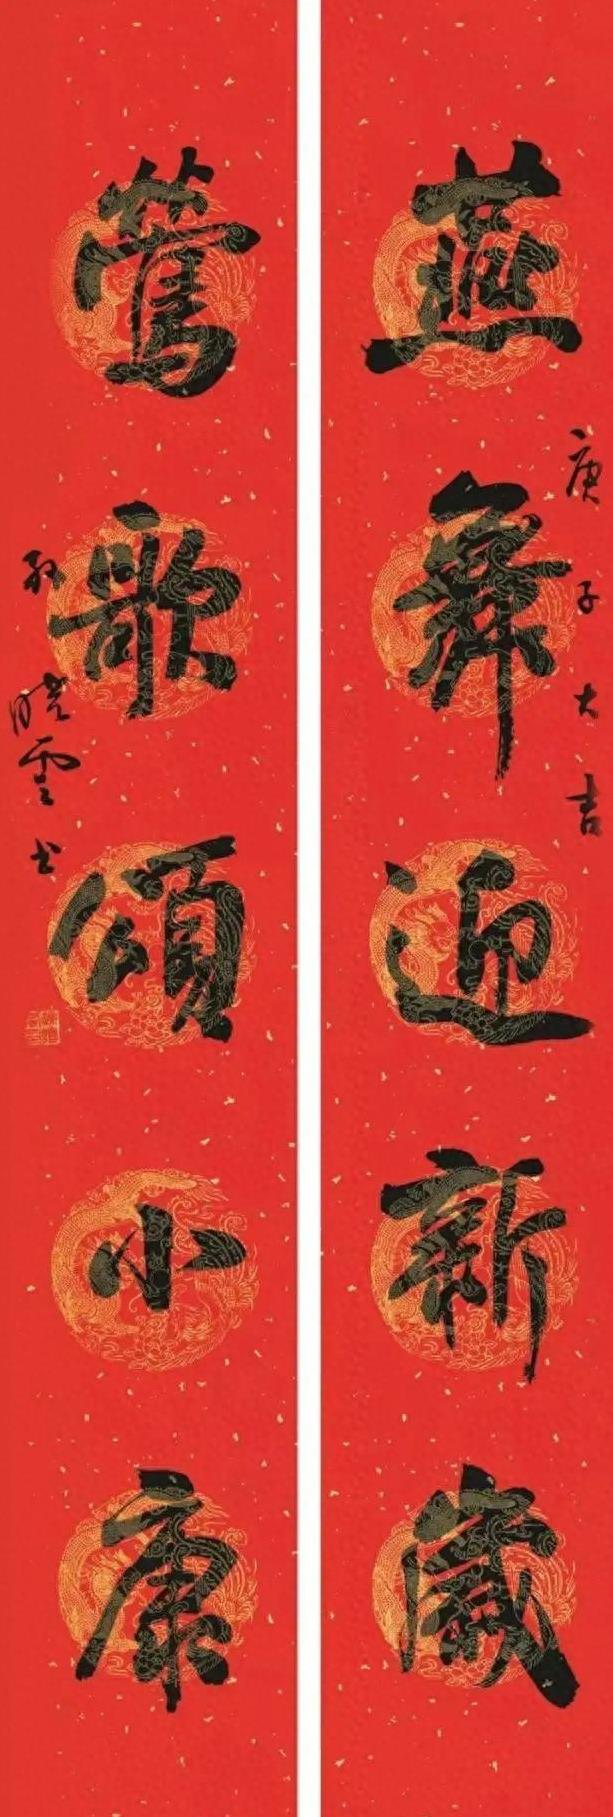 燕舞迎新歲
庚子大吉
鶯歌頌小康
孙晓雲书